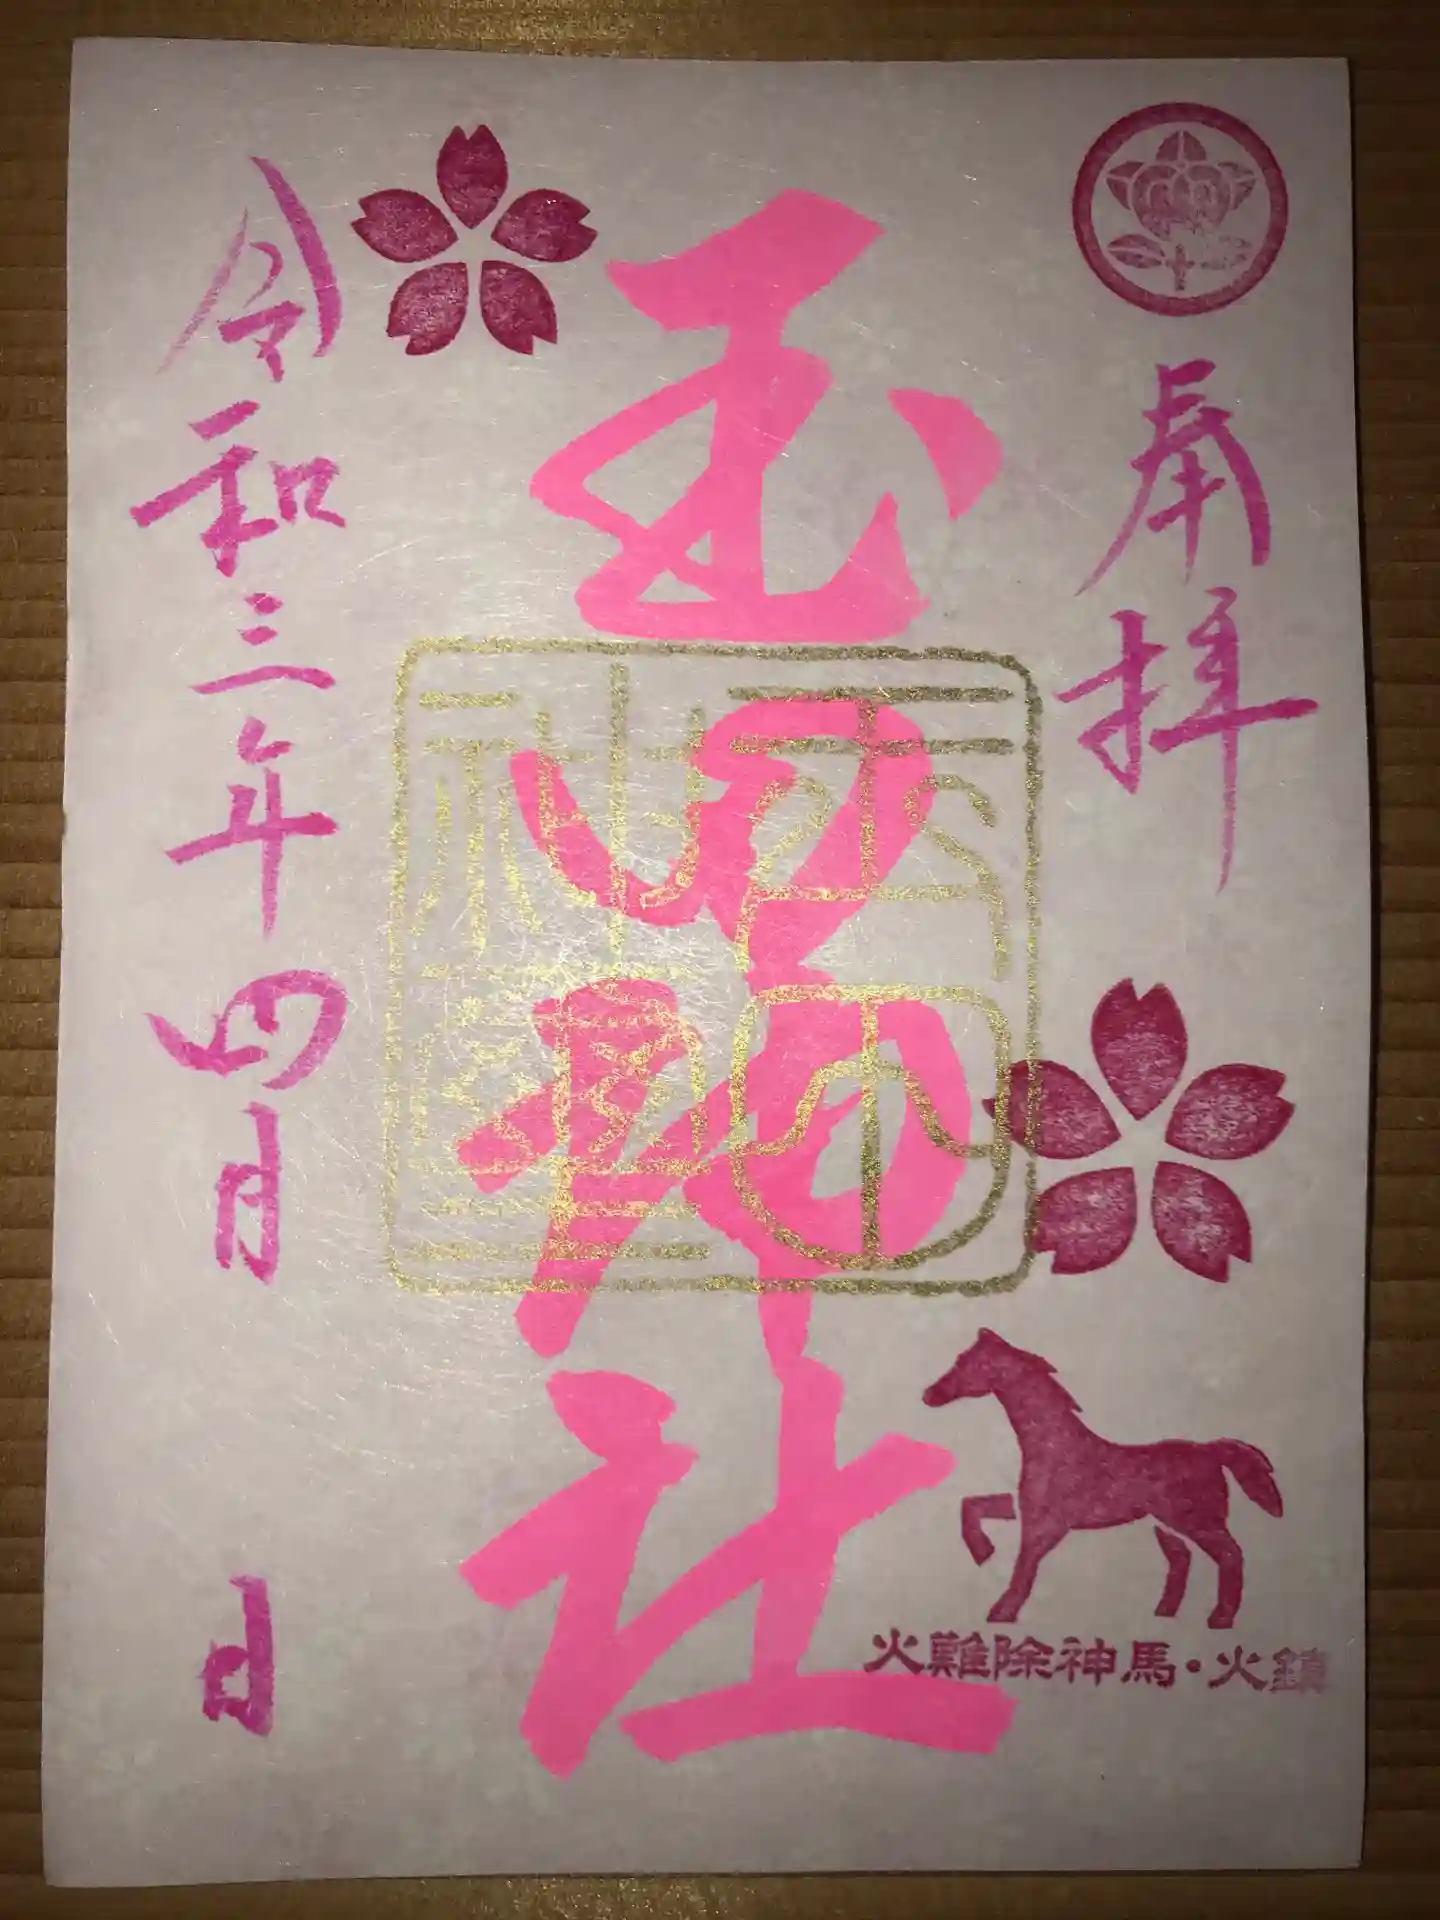 奉拝
火難除神馬・火鎮
玉田神社
令和三年四月 日